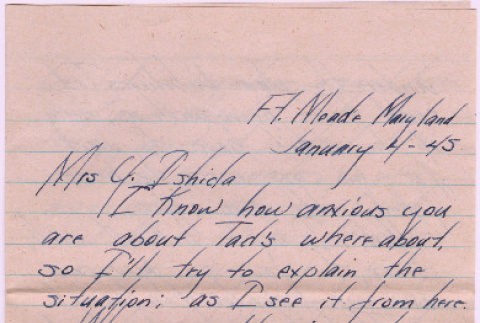 Ft. Meade Maryland
January 4-45
Mrs Y. Ishida
I know how anxious you
are about Tad's where about,
so I'll try to explain the
situation; as I see it from here.